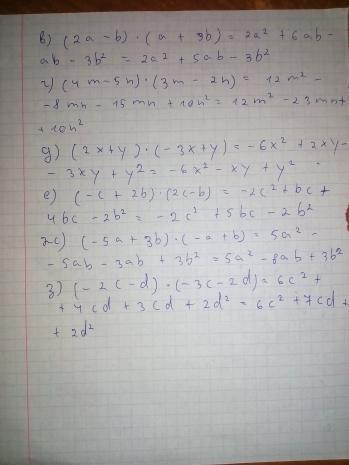 в) (2a - b) · (a + 3b) = 2a² + 6ab -
ab - 3b² = 2a² + 5ab - 3b²
г) (4m - 5n) · (3m - 2n) = 12m² -
- 8mn - 15mn + 10n² = 12m² - 23mn +
+ 10n²
д) (2x + y) · (-3x + y) = -6x² + 2xy -
- 3xy + y² = -6x² - xy + y²
е) (-c + 2b) · (2c - b) = -2c² + bc +
4bc - 2b² = -2c² + 5bc - 2b²
ж) (-5a + 3b) · (-a + b) = 5a² -
- 5ab - 3ab + 3b² = 5a² - 8ab + 3b²
з) (-2c - d) · (-3c - 2d) = 6c² +
+ 4cd + 3cd + 2d² = 6c² + 7cd +
+ 2d²